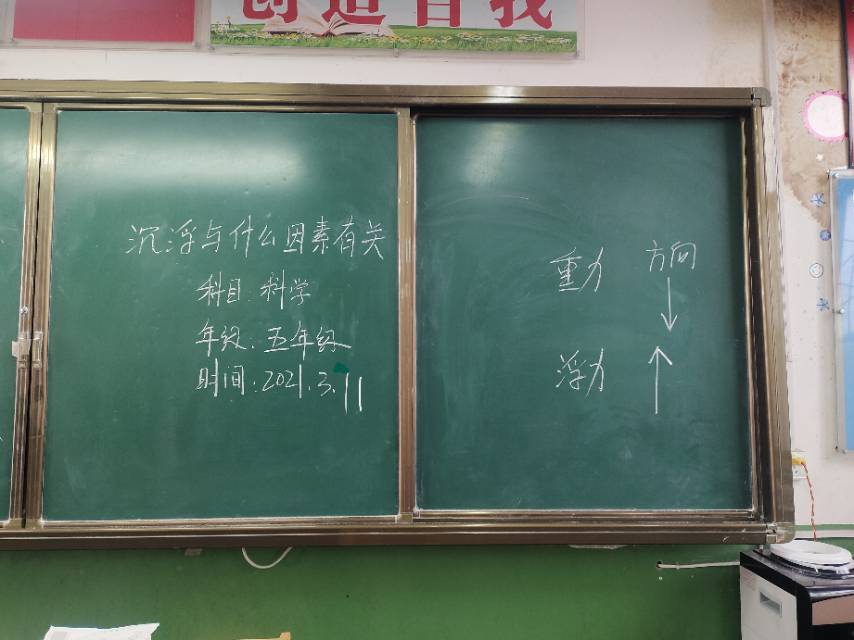 创造自我
沉浮与什么因素有关
科目 科学
年级. 五年级
时间: 2021.3.11
重力 方向
↓
浮力 ↑